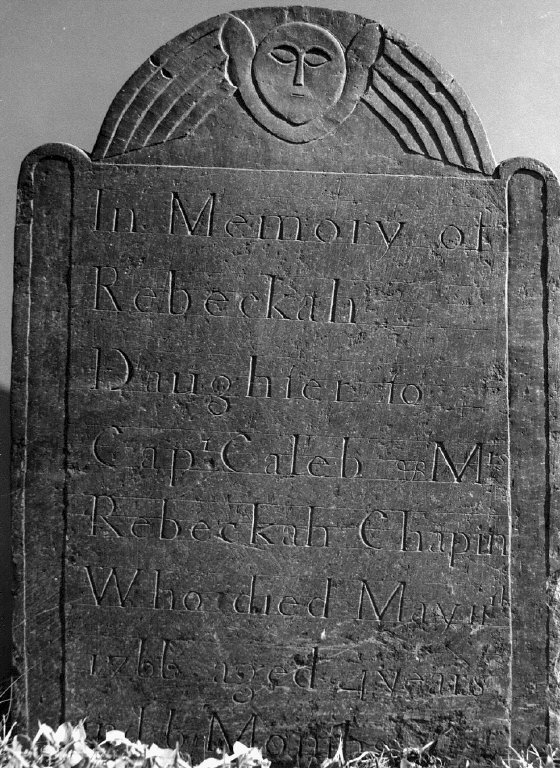 In Memory of
Rebeckah
Daughter to
Capt Caleb & Mrs
Rebeckah Chapin
Who died May 11th
1766 aged 4 years
and 6 Month